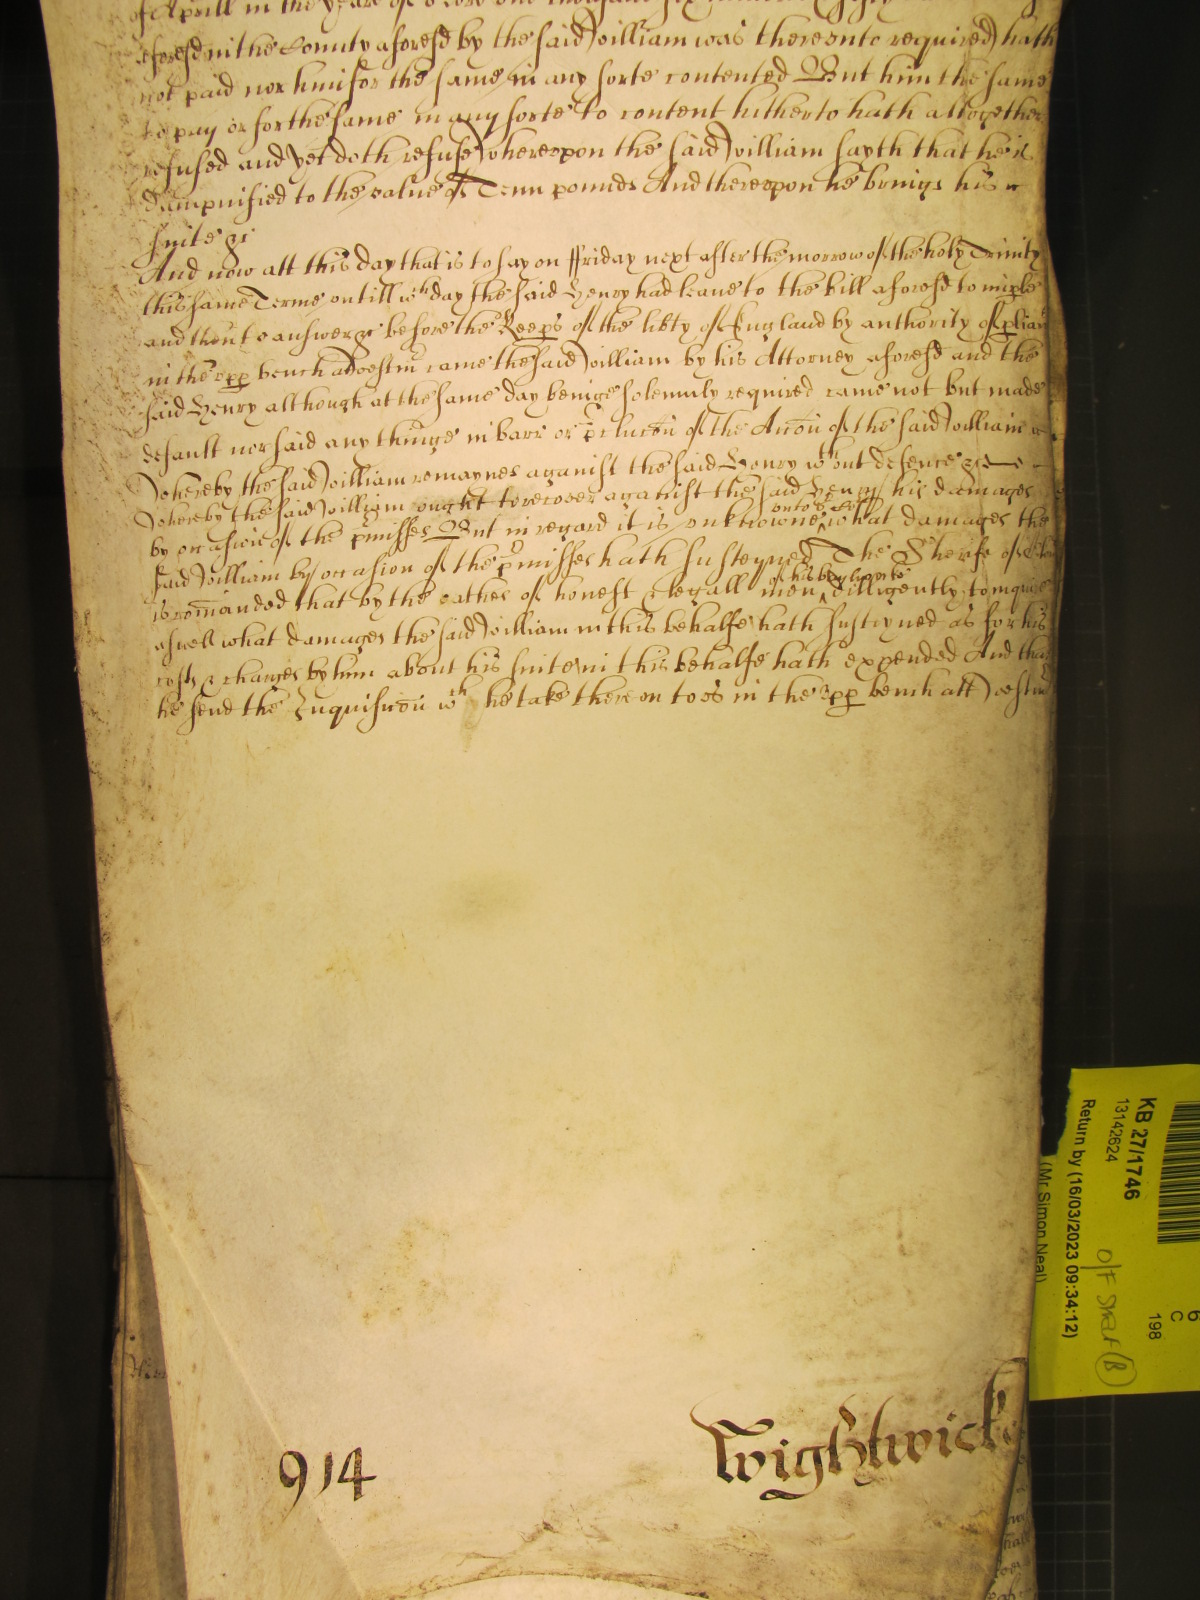 of Aprill in the yeare of o Lord one thousand six hundred
aforesd in the County aforesd by the said William was thereonto required hath
not paid nor him for the same in any sorte contented But him the same
to pay or for the same in any sorte to content hitherto hath altogether
refused and yet doth refuse Whereupon the said William sayth that he is
dampnified to the value of Tenn pounds And thereupon he brings his
suite &c
And now att this day that is to say on ffriday next after the morrow of the holy Trinity
this same Terme untill wch day the said Henry had leave to the bill aforesd to imple
and then to answer &c before the Keeps of the libty of England by authority of pliam
in the upp bench att Westm came the said William by his Attorney aforesd and the
said Henry although at the same day beinge solemnly required came not but made
default nor said any thinge in barr or pclucon of the Accon of the said William
Whereby the said William remaynes against the said Henry wthout defence &c
Whereby the said William ought to recover against the said Henry his damages
by occasion of the pmisses But in regard it is unknowne onto what damages the
said William by occasion of the pmisses hath susteyned The Sherife of
is comanded that by the oathes of honest & legall men of his baylywicke dilligently to inquire
aswell what damages the said William in this behalfe hath susteyned as for his
costs & charges by him about his suite in this behalfe hath expended And that
he send the Inquisicon wch he take there on to us in the upp bench att Westm
914 Wightwick
KB 27/1746
13142624
Return by (16/03/2023 09:34:12)
(Mr Simon Neal)
6
C
198
O/F Shelf (B)